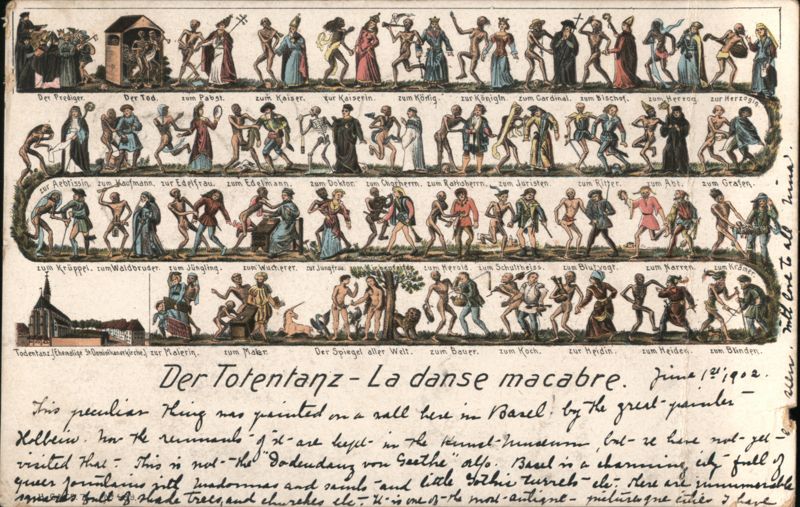 Der Prediger. Der Tod. zum Pabst. zum Kaiser. zur Kaiserin. zum König. zur Königin. zum Cardinal. zum Bischof. zum Herzog. zur Herzogin.
zur Aebtissin. zum Kaufmann. zur Edelfrau. zum Edelmann. zum Doktor. zum Chorherrn. zum Rathsherrn. zum Juristen. zum Ritter. zum Abt. zum Grafen.
zum Krüppel. zum Waldbruder. zum Jüngling. zum Wucherer. zur Jungfrau. zum Herold. zum Schultheiss. zum Blutvogt. zum Narren. zum Krämer.
Todentanz. (Ehemalige Dominikanerkirche.) zur Malerin. zum Maler. Der Spiegel aller Welt. zum Bauer. zum Koch. zur Heidin. zum Heiden. zum Blinden.
Der Totentanz - La danse macabre. June 1st, 1902.
This peculiar thing was painted on a wall here in Basel by the great painter
Holbein. Now the remnants of it are kept in the Kunst-Museum, but we have not yet
visited that. This is not the "Dodendanz von Goethe" Basel is a charming city full of
queer fountains with Madonnas and saints and little Gothic turrets etc. there are innumerable
squares full of shade trees, and churches etc. It is one of the most antique - picturesque cities I have
seen with love to all Nina.